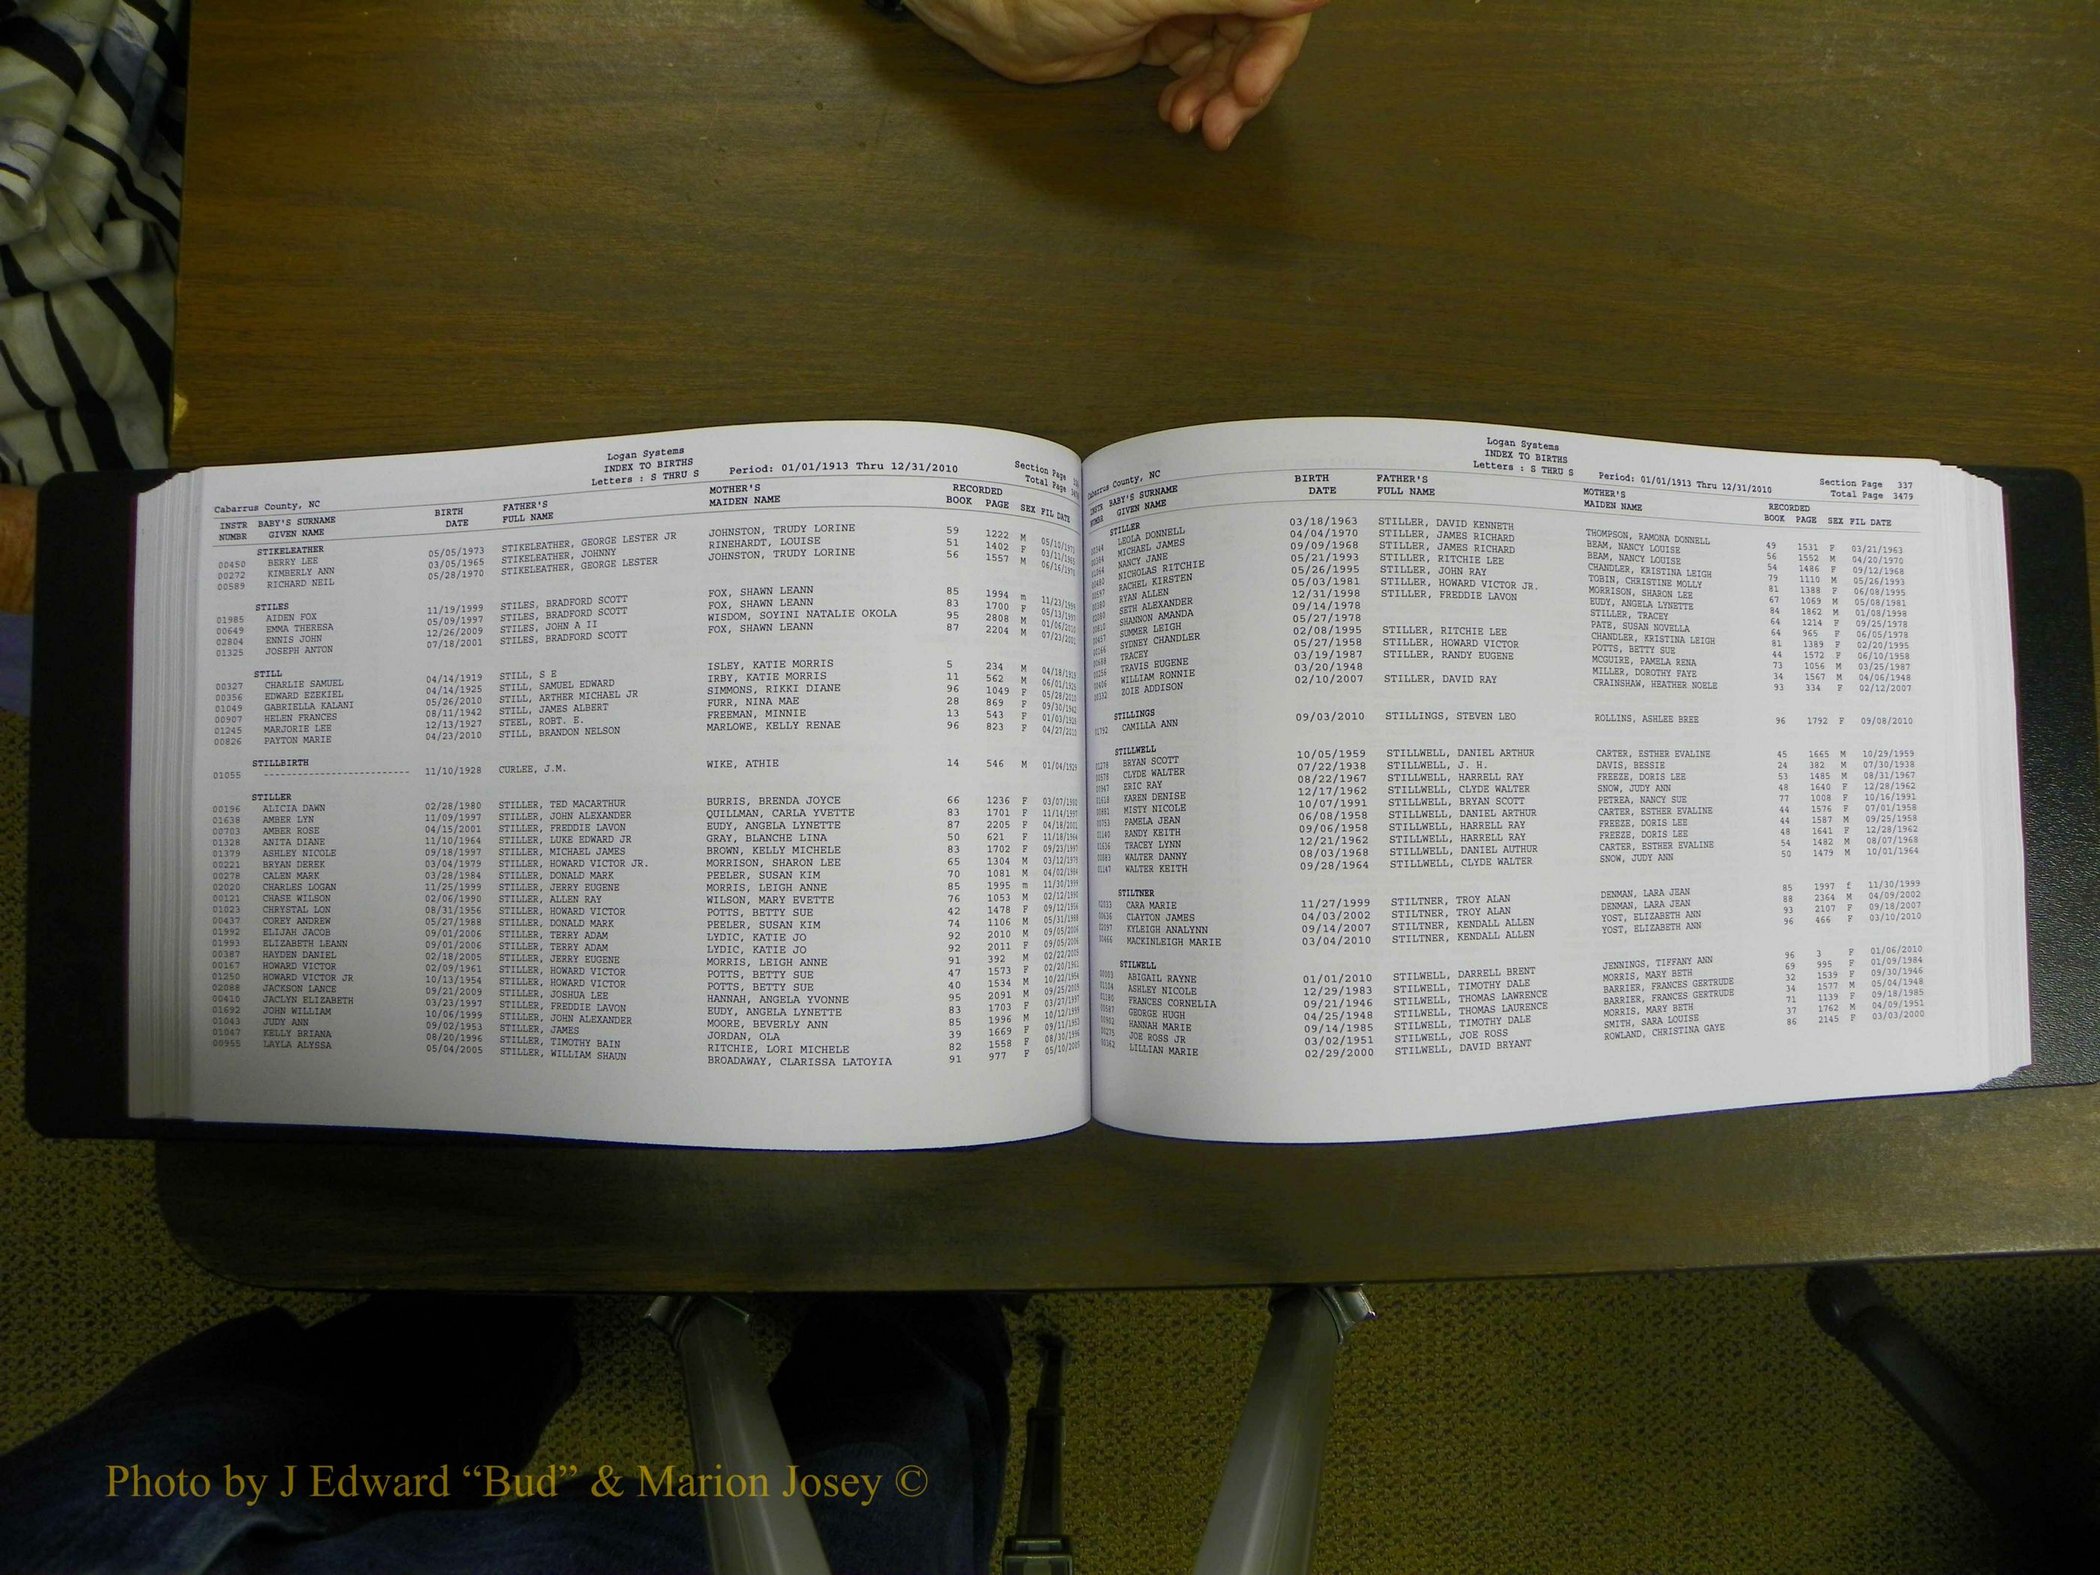 Logan Systems
INDEX TO BIRTHS
Cabarrus County, NC Letters : S THRU S Period: 01/01/1913 Thru 12/31/2010 Section Page
Total Page
INSTR BABY'S SURNAME BIRTH FATHER'S MOTHER'S RECORDED
NUMBR GIVEN NAME DATE FULL NAME MAIDEN NAME BOOK PAGE SEX FIL DATE
STIKELEATHER
00450 BERRY LEE 05/05/1973 STIKELEATHER, GEORGE LESTER JR JOHNSTON, TRUDY LORINE 59 1222 M
00272 KIMBERLY ANN 03/05/1965 STIKELEATHER, JOHNNY RINEHARDT, LOUISE 51 1402 F 03/11/1965
00589 RICHARD NEIL 05/28/1970 STIKELEATHER, GEORGE LESTER JOHNSTON, TRUDY LORINE 56 1557 M 06/16/1970
STILES
01985 AIDEN FOX 11/19/1999 STILES, BRADFORD SCOTT FOX, SHAWN LEANN 85 1994 m 11/23/1999
00649 EMMA THERESA 05/09/1997 STILES, BRADFORD SCOTT FOX, SHAWN LEANN 83 1700 F 05/13/1997
02804 ENNIS JOHN 12/26/2009 STILES, JOHN A II WISDOM, SOYINI NATALIE OKOLA 95 2808 M 01/06/2010
01325 JOSEPH ANTON 07/18/2001 STILES, BRADFORD SCOTT FOX, SHAWN LEANN 87 2204 M 07/23/2001
STILL
00327 CHARLIE SAMUEL 04/14/1919 STILL, S E ISLEY, KATIE MORRIS 5 234 M 04/18/1919
00356 EDWARD EZEKIEL 04/14/1925 STILL, SAMUEL EDWARD IRBY, KATIE MORRIS 11 562 M 06/01/1925
01049 GABRIELLA KALANI 05/26/2010 STILL, ARTHER MICHAEL JR SIMMONS, RIKKI DIANE 96 1049 F 05/28/2010
00907 HELEN FRANCES 08/11/1942 STILL, JAMES ALBERT FURR, NINA MAE 28 869 F 09/30/1942
01245 MARJORIE LEE 12/13/1927 STEEL, ROBT. E. FREEMAN, MINNIE 13 543 F 01/03/1928
00826 PAYTON MARIE 04/23/2010 STILL, BRANDON NELSON MARLOWE, KELLY RENAE 96 823 F 04/27/2010
STILLBIRTH
01055 ------------------------ 11/10/1928 CURLEE, J.M. WIKE, ATHIE 14 546 M 01/04/1929
STILLER
00196 ALICIA DAWN 02/28/1980 STILLER, TED MACARTHUR BURRIS, BRENDA JOYCE 66 1236 F 03/07/1980
01638 AMBER LYN 11/09/1997 STILLER, JOHN ALEXANDER QUILLMAN, CARLA YVETTE 83 1701 F 11/14/1997
00703 AMBER ROSE 04/15/2001 STILLER, FREDDIE LAVON EUDY, ANGELA LYNETTE 87 2205 F 04/18/2001
01328 ANITA DIANE 11/10/1964 STILLER, LUKE EDWARD JR GRAY, BLANCHE LINA 50 621 F 11/18/1964
01379 ASHLEY NICOLE 09/18/1997 STILLER, MICHAEL JAMES BROWN, KELLY MICHELE 83 1702 F 09/23/1997
00221 BRYAN DEREK 03/04/1979 STILLER, HOWARD VICTOR JR. MORRISON, SHARON LEE 65 1304 M 03/12/1979
00278 CALEN MARK 03/28/1984 STILLER, DONALD MARK PEELER, SUSAN KIM 70 1081 M 04/02/1984
02020 CHARLES LOGAN 11/25/1999 STILLER, JERRY EUGENE MORRIS, LEIGH ANNE 85 1995 m 11/30/1999
00121 CHASE WILSON 02/06/1990 STILLER, ALLEN RAY WILSON, MARY EVETTE 76 1053 M 02/12/1990
01023 CHRYSTAL LON 08/31/1956 STILLER, HOWARD VICTOR POTTS, BETTY SUE 42 1478 F 09/12/1956
00437 COREY ANDREW 05/27/1988 STILLER, DONALD MARK PEELER, SUSAN KIM 74 1106 M 05/31/1988
01992 ELIJAH JACOB 09/01/2006 STILLER, TERRY ADAM LYDIC, KATIE JO 92 2010 M 09/05/2006
01993 ELIZABETH LEANN 09/01/2006 STILLER, TERRY ADAM LYDIC, KATIE JO 92 2011 F 09/05/2006
00387 HAYDEN DANIEL 02/18/2005 STILLER, JERRY EUGENE MORRIS, LEIGH ANNE 91 392 M 02/22/2005
00167 HOWARD VICTOR 02/09/1961 STILLER, HOWARD VICTOR POTTS, BETTY SUE 47 1573 F 02/20/1961
01250 HOWARD VICTOR JR 10/13/1954 STILLER, HOWARD VICTOR POTTS, BETTY SUE 40 1534 M 10/22/1954
02088 JACKSON LANCE 09/21/2009 STILLER, JOSHUA LEE HANNAH, ANGELA YVONNE 95 2091 M 09/25/2009
00410 JACLYN ELIZABETH 03/23/1997 STILLER, FREDDIE LAVON EUDY, ANGELA LYNETTE 83 1703 F 03/27/1997
01692 JOHN WILLIAM 10/06/1999 STILLER, JOHN ALEXANDER MOORE, BEVERLY ANN 85 1996 M 10/12/1999
01043 JUDY ANN 09/02/1953 STILLER, JAMES JORDAN, OLA 39 1669 F 09/11/1953
01047 KELLY BRIANA 08/20/1996 STILLER, TIMOTHY BAIN RITCHIE, LORI MICHELE 82 1558 F 08/30/1996
00955 LAYLA ALYSSA 05/04/2005 STILLER, WILLIAM SHAUN BROADAWAY, CLARISSA LATOYIA 91 977 F 05/10/2005
Logan Systems
INDEX TO BIRTHS
Cabarrus County, NC Letters : S THRU S Period: 01/01/1913 Thru 12/31/2010 Section Page 337
Total Page 3479
INSTR BABY'S SURNAME BIRTH FATHER'S MOTHER'S RECORDED
NUMBR GIVEN NAME DATE FULL NAME MAIDEN NAME BOOK PAGE SEX FIL DATE
STILLER
LEOLA DONNELL 03/18/1963 STILLER, DAVID KENNETH THOMPSON, RAMONA DONNELL 49 1531 F 03/21/1963
MICHAEL JAMES 04/04/1970 STILLER, JAMES RICHARD BEAM, NANCY LOUISE 56 1552 M 04/20/1970
NANCY JANE 09/09/1968 STILLER, JAMES RICHARD BEAM, NANCY LOUISE 54 1486 F 09/12/1968
NICHOLAS RITCHIE 05/21/1993 STILLER, RITCHIE LEE CHANDLER, KRISTINA LEIGH 79 1110 M 05/26/1993
RACHEL KIRSTEN 05/26/1995 STILLER, JOHN RAY TOBIN, CHRISTINE MOLLY 81 1388 F 06/08/1995
RYAN ALLEN 05/03/1981 STILLER, HOWARD VICTOR JR. MORRISON, SHARON LEE 67 1069 M 05/08/1981
SETH ALEXANDER 12/31/1998 STILLER, FREDDIE LAVON EUDY, ANGELA LYNETTE 84 1862 M 01/08/1998
SHANNON AMANDA 09/14/1978 STILLER, TRACEY 64 1214 F 09/25/1978
SUMMER LEIGH 05/27/1978 PATE, SUSAN NOVELLA 64 965 F 06/05/1978
SYDNEY CHANDLER 02/08/1995 STILLER, RITCHIE LEE CHANDLER, KRISTINA LEIGH 81 1389 F 02/20/1995
TRACEY 05/27/1958 STILLER, HOWARD VICTOR POTTS, BETTY SUE 44 1572 F 06/10/1958
TRAVIS EUGENE 03/19/1987 STILLER, RANDY EUGENE MCGUIRE, PAMELA RENA 73 1056 M 03/25/1987
WILLIAM RONNIE 03/20/1948 MILLER, DOROTHY FAYE 34 1567 M 04/06/1948
ZOIE ADDISON 02/10/2007 STILLER, DAVID RAY CRAINSHAW, HEATHER NOELE 93 334 F 02/12/2007
STILLINGS
01792 CAMILLA ANN 09/03/2010 STILLINGS, STEVEN LEO ROLLINS, ASHLEE BREE 96 1792 F 09/08/2010
STILLWELL
BRYAN SCOTT 10/05/1959 STILLWELL, DANIEL ARTHUR CARTER, ESTHER EVALINE 45 1665 M 10/29/1959
CLYDE WALTER 07/22/1938 STILLWELL, J. H. DAVIS, BESSIE 24 382 M 07/30/1938
ERIC RAY 08/22/1967 STILLWELL, HARRELL RAY FREEZE, DORIS LEE 53 1485 M 08/31/1967
KAREN DENISE 12/17/1962 STILLWELL, CLYDE WALTER SNOW, JUDY ANN 48 1640 F 12/28/1962
MISTY NICOLE 10/07/1991 STILLWELL, BRYAN SCOTT PETREA, NANCY SUE 77 1008 F 10/16/1991
PAMELA JEAN 06/08/1958 STILLWELL, DANIEL ARTHUR CARTER, ESTHER EVALINE 44 1576 F 07/01/1958
RANDY KEITH 09/06/1958 STILLWELL, HARRELL RAY FREEZE, DORIS LEE 44 1587 M 09/25/1958
TRACEY LYNN 12/21/1962 STILLWELL, HARRELL RAY FREEZE, DORIS LEE 48 1641 F 12/28/1962
WALTER DANNY 08/03/1968 STILLWELL, DANIEL AUTHUR CARTER, ESTHER EVALINE 54 1482 M 08/07/1968
WALTER KEITH 09/28/1964 STILLWELL, CLYDE WALTER SNOW, JUDY ANN 50 1479 M 10/01/1964
STILTNER
CARA MARIE 11/27/1999 STILTNER, TROY ALAN DENMAN, LARA JEAN 85 1997 f 11/30/1999
CLAYTON JAMES 04/03/2002 STILTNER, TROY ALAN DENMAN, LARA JEAN 88 2364 M 04/09/2002
KYLEIGH ANALYNN 09/14/2007 STILTNER, KENDALL ALLEN YOST, ELIZABETH ANN 93 2107 F 09/18/2007
MACKINLEIGH MARIE 03/04/2010 STILTNER, KENDALL ALLEN YOST, ELIZABETH ANN 96 466 F 03/10/2010
STILWELL
ABIGAIL RAYNE 01/01/2010 STILWELL, DARRELL BRENT JENNINGS, TIFFANY ANN 96 3 F 01/06/2010
ASHLEY NICOLE 12/29/1983 STILWELL, TIMOTHY DALE MORRIS, MARY BETH 69 995 F 01/09/1984
FRANCES CORNELIA 09/21/1946 STILWELL, THOMAS LAWRENCE BARRIER, FRANCES GERTRUDE 32 1539 F 09/30/1946
GEORGE HUGH 04/25/1948 STILWELL, THOMAS LAURENCE BARRIER, FRANCES GERTRUDE 34 1577 M 05/04/1948
HANNAH MARIE 09/14/1985 STILWELL, TIMOTHY DALE MORRIS, MARY BETH 71 1139 F 09/18/1985
JOE ROSS JR 03/02/1951 STILWELL, JOE ROSS SMITH, SARA LOUISE 37 1762 M 04/09/1951
LILLIAN MARIE 02/29/2000 STILWELL, DAVID BRYANT ROWLAND, CHRISTINA GAYE 86 2145 F 03/03/2000
Photo by J Edward “Bud” & Marion Josey ©